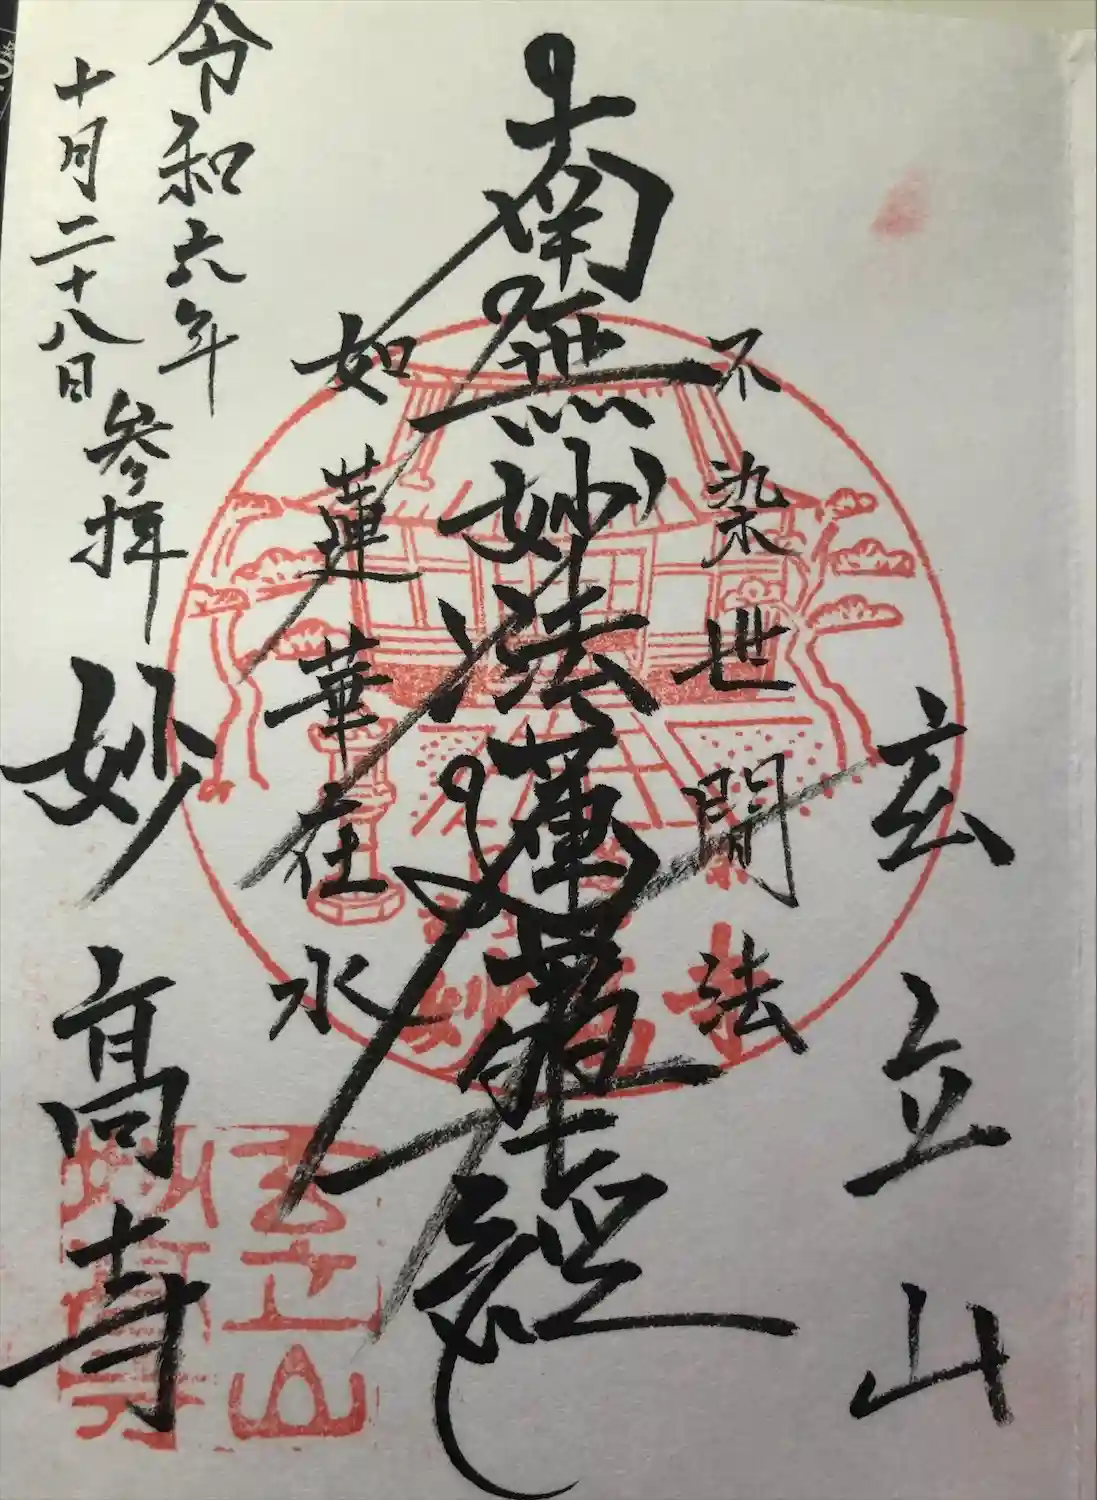 玄立山
不染世間法
南無妙法蓮華経
如蓮華在水
令和六年
十月二十八日
参拝
妙高寺
玄立山
妙高寺